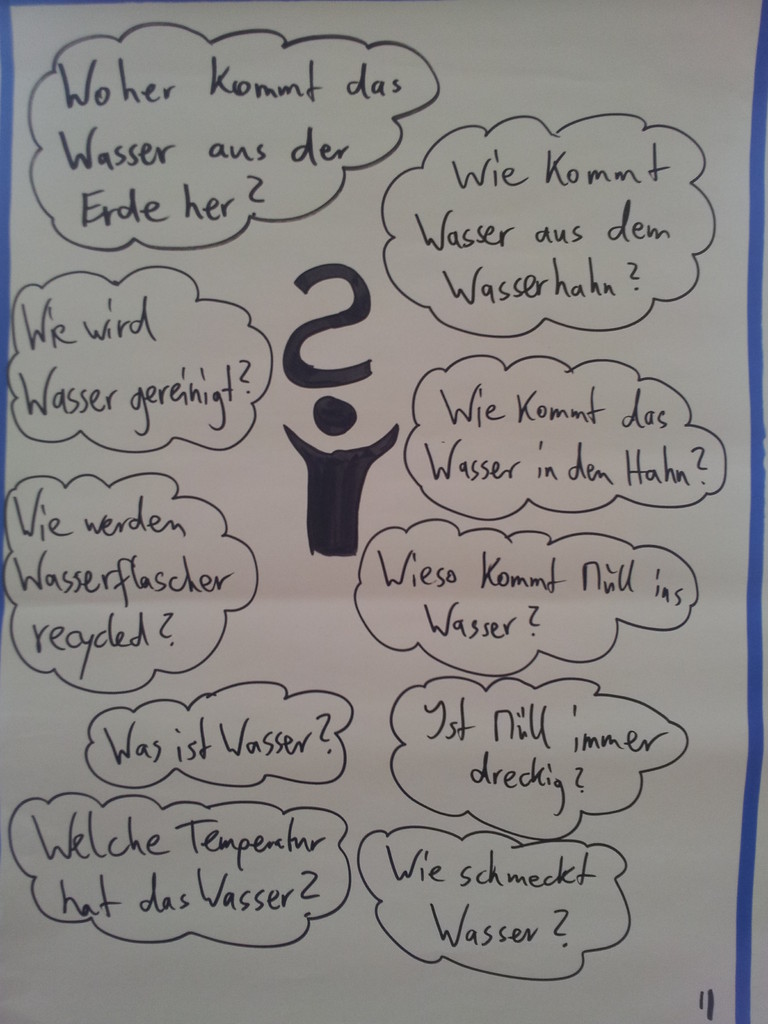 Woher kommt das
Wasser aus der
Erde her?
Wie kommt
Wasser aus dem
Wasserhahn?
Wie wird
Wasser gereinigt?
Wie kommt das
Wasser in den Hahn?
Wie werden
Wasserflaschen
recycled?
Wieso kommt Müll ins
Wasser?
Was ist Wasser?
Ist Müll immer
dreckig?
Welche Temperatur
hat das Wasser?
Wie schmeckt
Wasser?
11